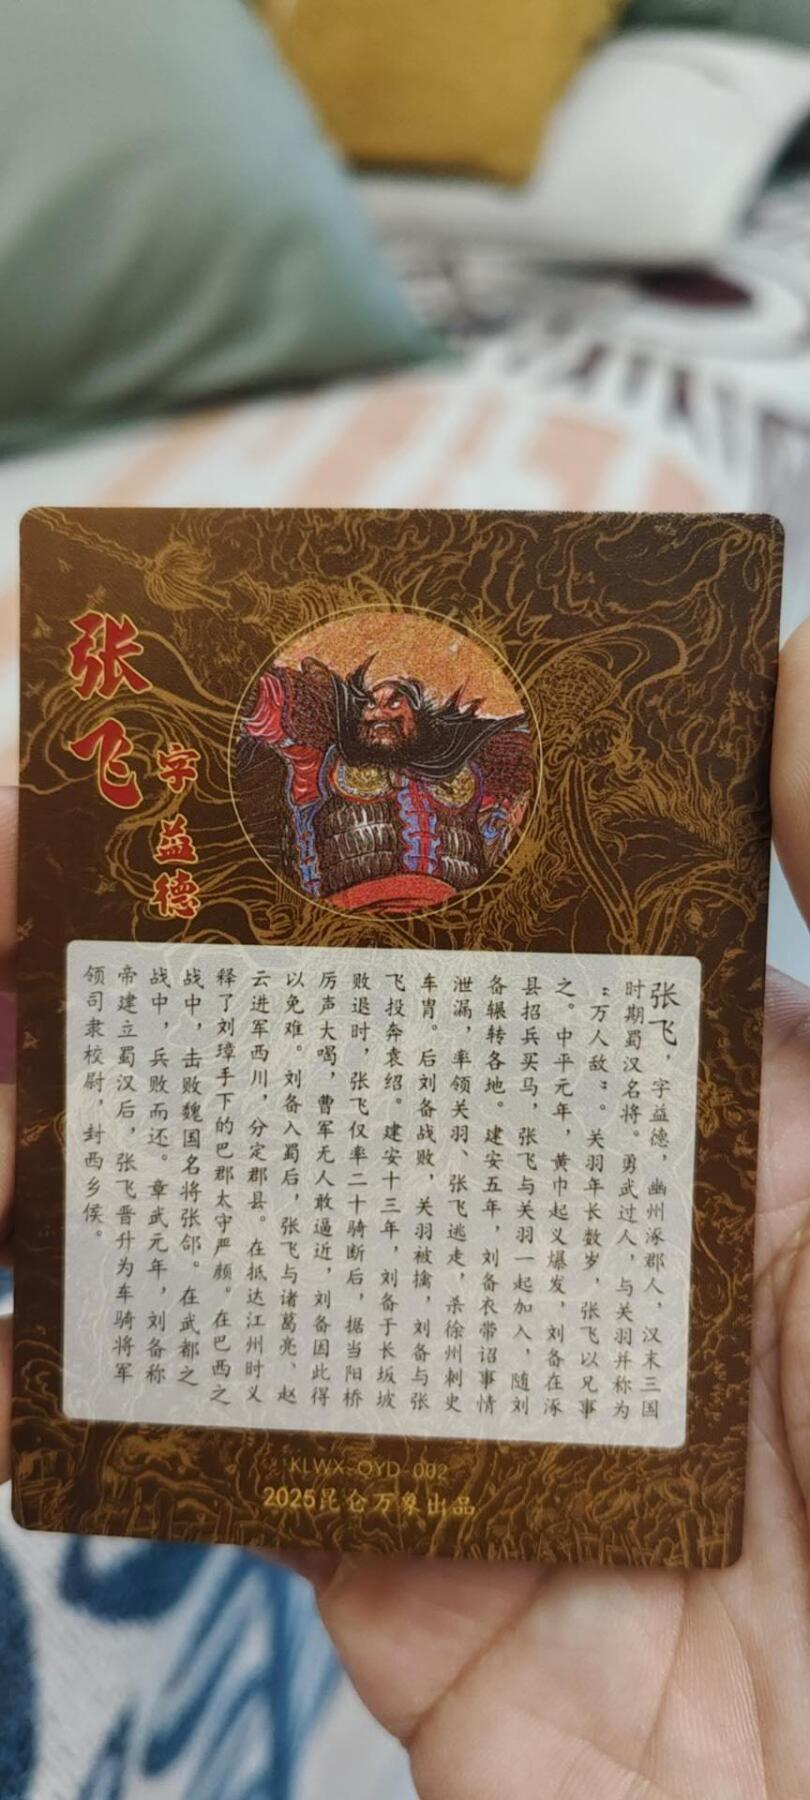 张飞
字益德
张飞，字益德，幽州涿郡人，汉末三国
时期蜀汉名将。勇武过人，与关羽并称为
“万人敌”。关羽年长数岁，张飞以兄事
之。中平元年，黄巾起义爆发，刘备在涿
县招兵买马，张飞与关羽一起加入，随刘
备辗转各地。建安五年，刘备衣带诏事情
泄漏，率领关羽、张飞逃走，杀徐州刺史
车胄。后刘备战败，关羽被擒，刘备与张
飞投奔袁绍。建安十三年，刘备于长坂坡
败退时，张飞仅率二十骑断后，据当阳桥
厉声大喝，曹军无人敢逼近，刘备因此得
以免难。刘备入蜀后，张飞与诸葛亮、赵
云进军西川，分定郡县。在抵达江州时义
释了刘璋手下的巴郡太守严颜。在巴西之
战中，击败魏国名将张郃。在武都之
战中，兵败而还。章武元年，刘备称
帝建立蜀汉后，张飞晋升为车骑将军
领司隶校尉，封西乡侯。
KLWX-QYD-002
2025昆仑万象出品